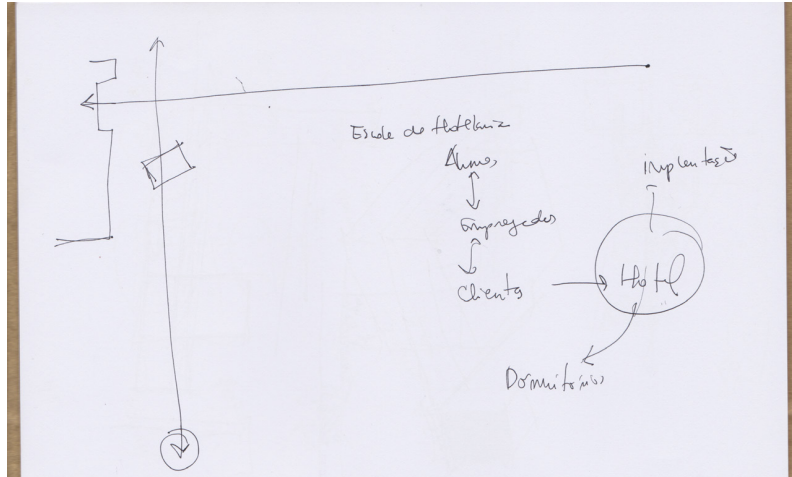 Escola de Hotelaria
Alunos
Empregados
Clientes
implantação
Hotel
Dormitórios